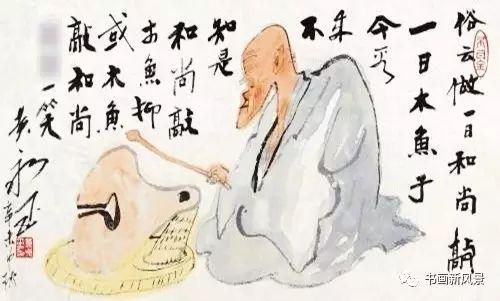 俗云做一日和尚敲
一日木魚于
今看
来
不
知是
和尚敲
木魚抑
或木魚
敲和尚
一笑
黄永玉
辛未中秋
书画新风景